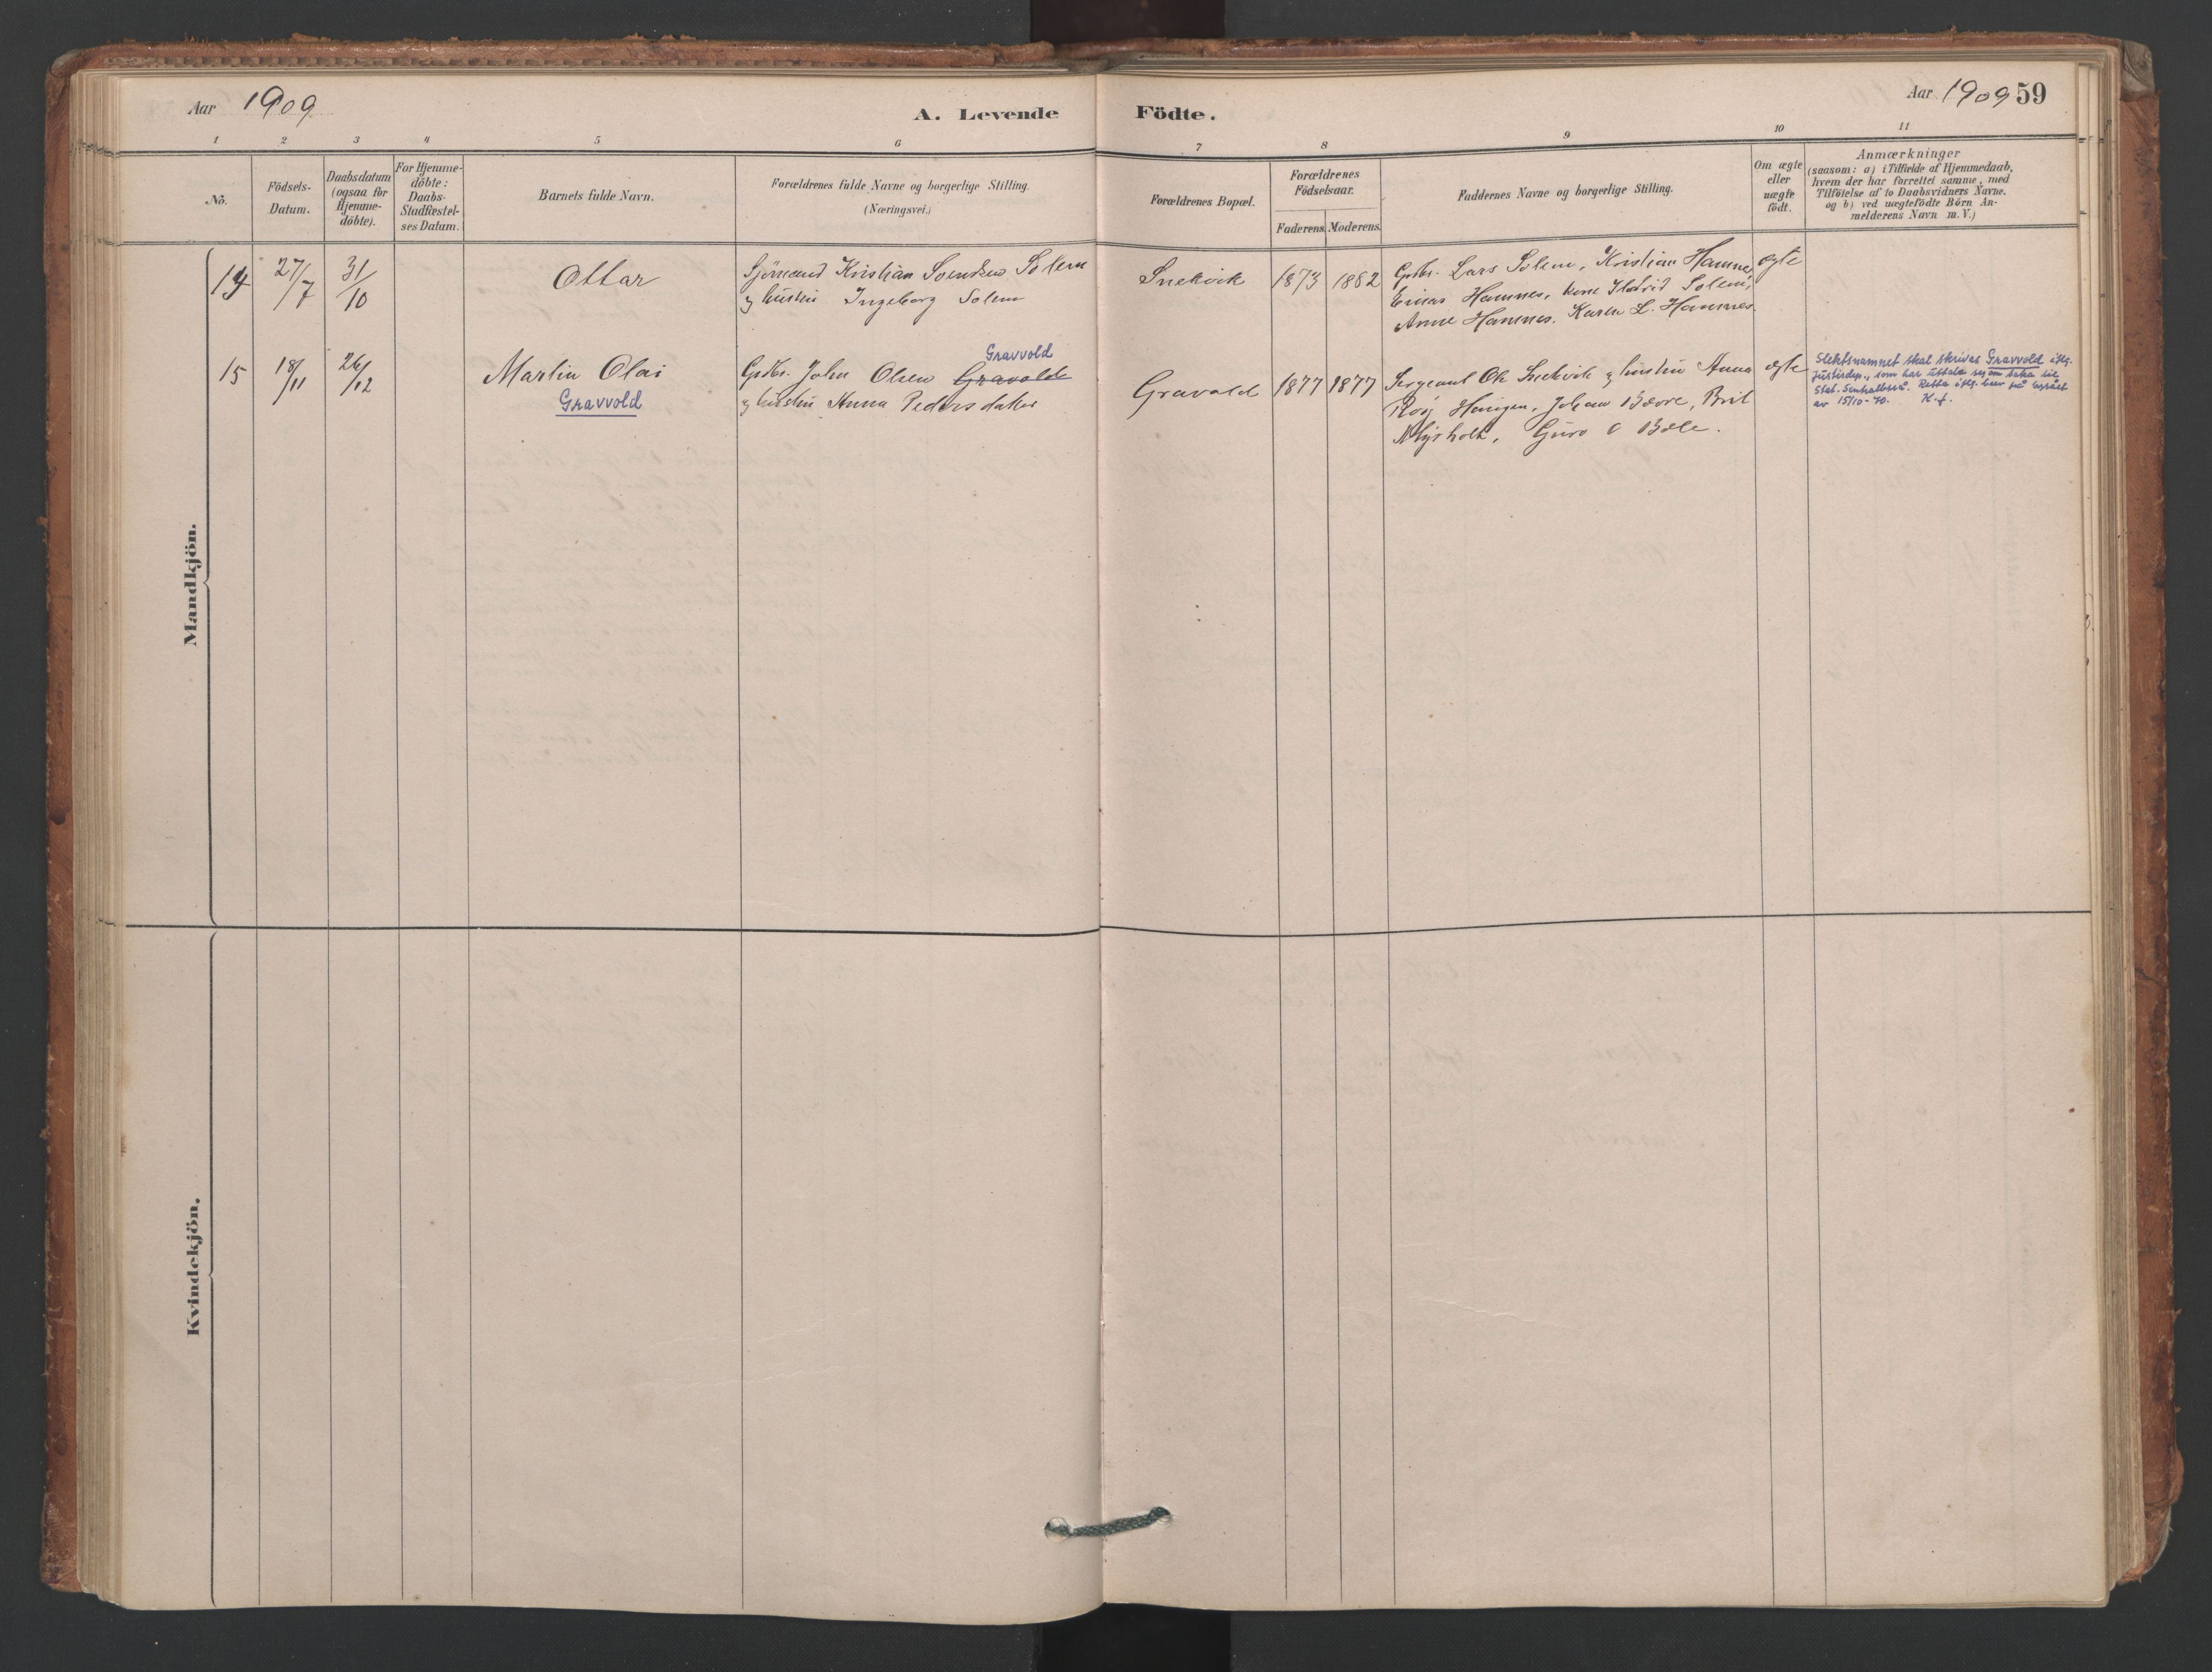 Aar 1909
A. Levende
Födte.
Aar 1909 59
1 2 3 4 5 6 7 8 9 10 11
Nö.
Födsels-
Datum.
Daabsdatum
(ogsaa for
Hjemme-
döbte).
For Hjemme-
döbte:
Daabs-
Stadfæstel-
ses Datum.
Barnets fulde Navn.
Forældrenes fulde Navne og borgerlige Stilling.
(Næringsvei.)
Forældrenes Bopæl.
Forældrenes
Födselsaar.
Faderens. Moderens.
Faddernes Navne og borgerlige Stilling.
Om ægte
eller
uægte
født.
Anmærkninger
(saasom: a) i Tilfælde af Hjemmedaab,
hvem der har forrettet samme, med
Tilföielse af to Daabsvidners Navne.
og b) ved uægtefödte Börn An-
melderens Navn m. V.)
Mandkjön.
14
27/7
31/10
Ottar
Sjömand Kristian Svendsen Solem
og hustru Ingeborg Solem
Snekvik
1873
1882
Gpbr. Lars Solem, Kristian Hamnes,
Einar Hamnes, kone Solem,
Anne Hamnes. Karen L. Hamnes.
ægte
15
18/11
26/12
Martin Olai
Gravvold
Gravvold
Gpdbr. John Olsen Gravold
og hustru Anna Pedersdatter
Gravald
1877
1877
Sergeant Ole Snekvik og hustru Anna
Haugen, Johan Bævre, Brit
Myrholt, Guro Bæle.
ægte
Slektsnamnet skal skrivas Gravvold iflg.
Justisdep., som har uttala seg om saka til
Stat. Sentralbyrå. Retta iflg. brev på
av 15/10-40. K.f.
Kvindekjön.